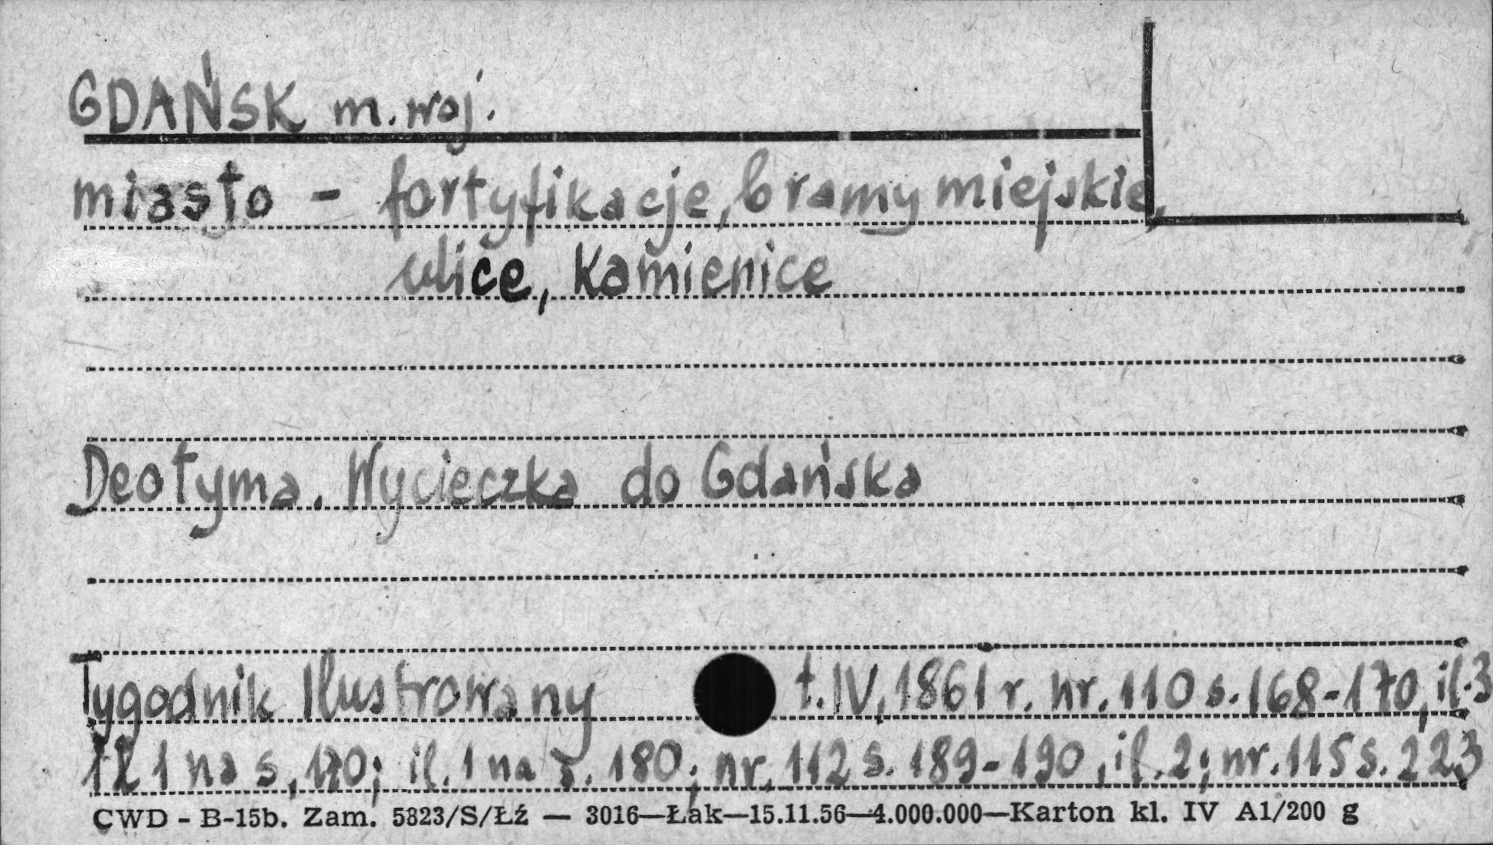 GDAŃSK m. woj.
miasto - fortyfikacje, bramy miejskie,
ulice, kamienice
Deotyma. Wycieczka do Gdańska
Tygodnik Ilustrowany t. IV, 1861 r. nr. 110 s. 168-170, il. 3
Il 1 na s. 170; il. 1 na s. 180; nr. 112 s. 189-190, il. 2; nr. 115 s. 223
CWD - B-15b. Zam. 5823/S/Łź — 3016—Łak—15.11.56—4.000.000—Karton kl. IV A1/200 g